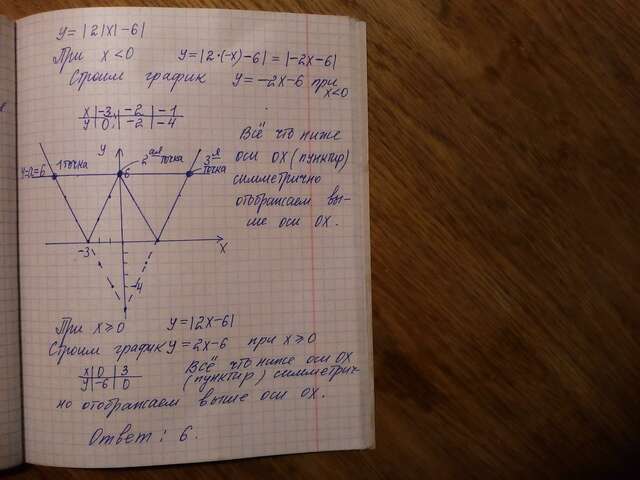 y = |2|x| - 6|
При x < 0 y = |2·(-x) - 6| = |-2x - 6|
Строим график y = -2x - 6 при x<0
x | -3 | -2 | -1
y | 0 | -2 | -4
Всё что ниже
оси OX (пунктир)
симметрично
отображаем вы-
ше оси OX.
y
y=a=6
1 точка
2ая точка
3я точка
6
-3
x
-4
При x ⩾ 0 y = |2x - 6|
Строим график y = 2x - 6 при x ⩾ 0
x | 0 | 3
y | -6 | 0
Всё что ниже оси OX
(пунктир) симметрич
но отображаем выше оси OX.
Ответ: 6.